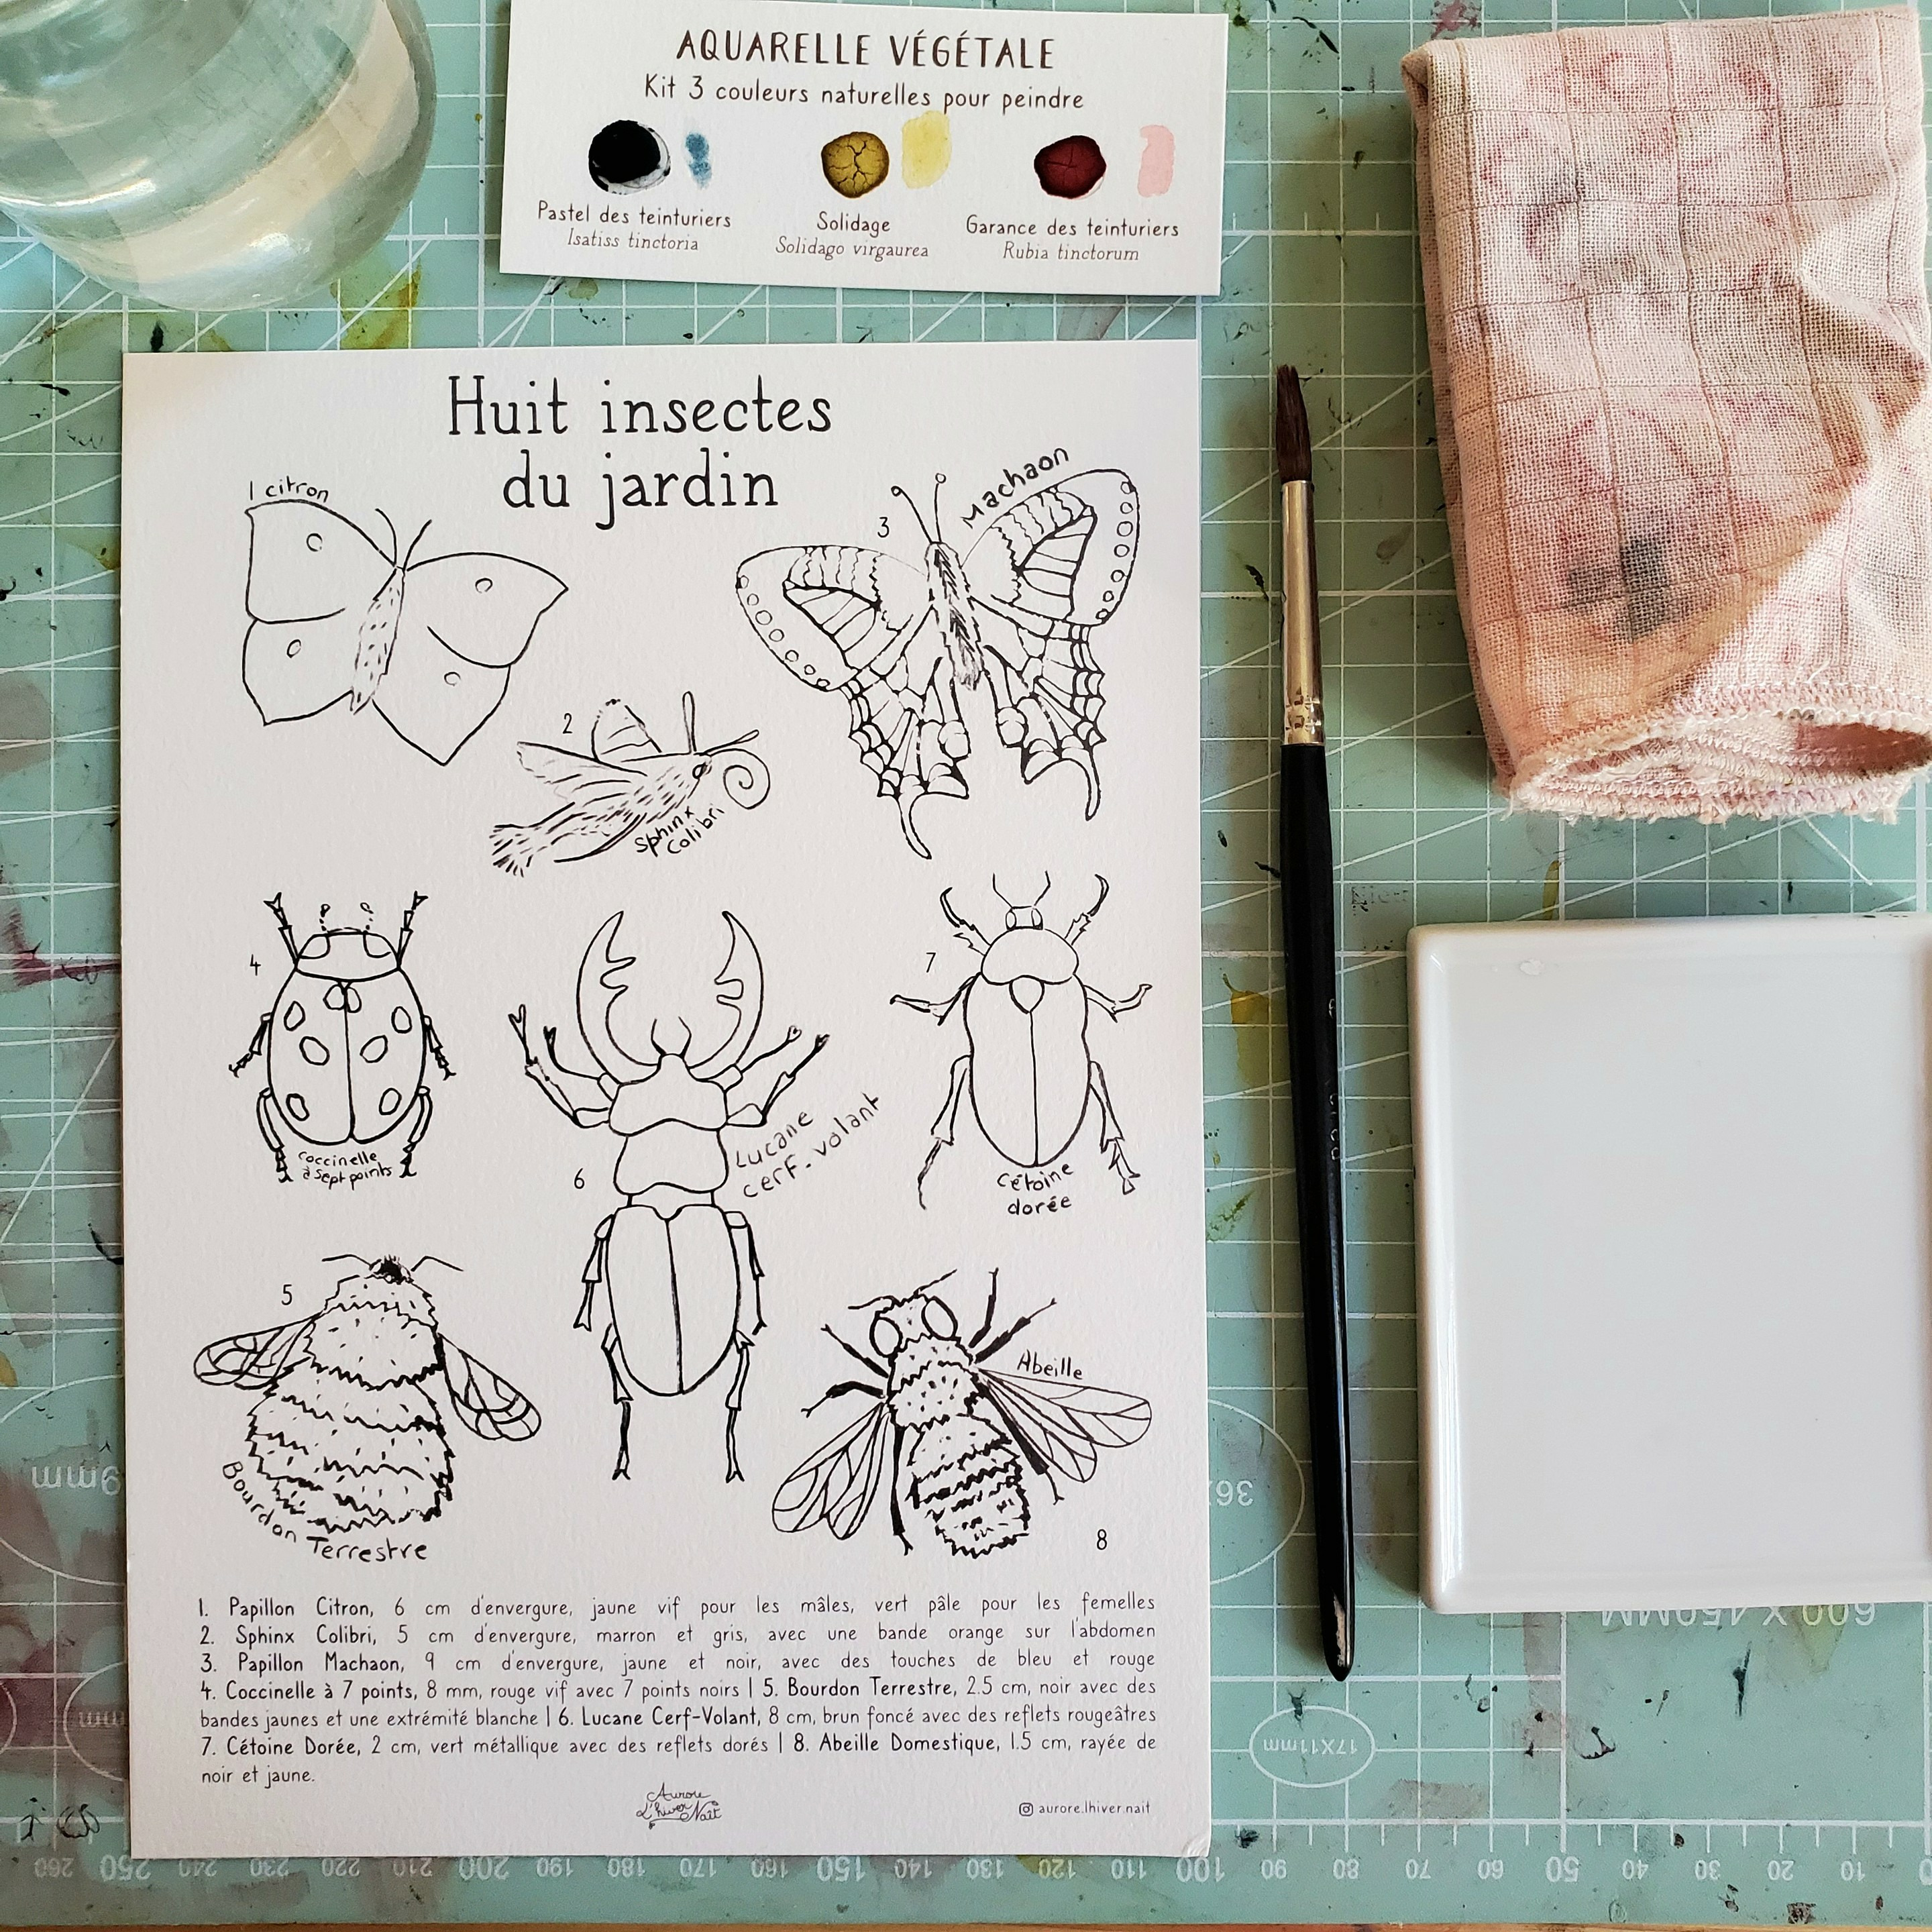 AQUARELLE VÉGÉTALE
Kit 3 couleurs naturelles pour peindre
Pastel des teinturiers
Isatiss tinctoria
Solidage
Solidago virgaurea
Garance des teinturiers
Rubia tinctorum
Huit insectes
du jardin
1 citron
3
Machaon
2
Sphinx
Colibri
4
coccinelle
à sept points
6
Lucane
cerf-volant
7
Cétoine
dorée
5
Bourdon Terrestre
Abeille
8
1. Papillon Citron, 6 cm d'envergure, jaune vif pour les mâles, vert pâle pour les femelles
2. Sphinx Colibri, 5 cm d'envergure, marron et gris, avec une bande orange sur l'abdomen
3. Papillon Machaon, 9 cm d'envergure, jaune et noir, avec des touches de bleu et rouge
4. Coccinelle à 7 points, 8 mm, rouge vif avec 7 points noirs | 5. Bourdon Terrestre, 2.5 cm, noir avec des
bandes jaunes et une extrémité blanche | 6. Lucane Cerf-Volant, 8 cm, brun foncé avec des reflets rougeâtres
7. Cétoine Dorée, 2 cm, vert métallique avec des reflets dorés | 8. Abeille Domestique, 1.5 cm, rayée de
noir et jaune.
Aurore
L'hiver Naît
aurore.lhiver.nait
600 X 450MM
17X11mm
260 250 240 230 220 210 200 190 180 170 160 150 140 130 120 110 100 90 80 70 60 50 40 30 20 10